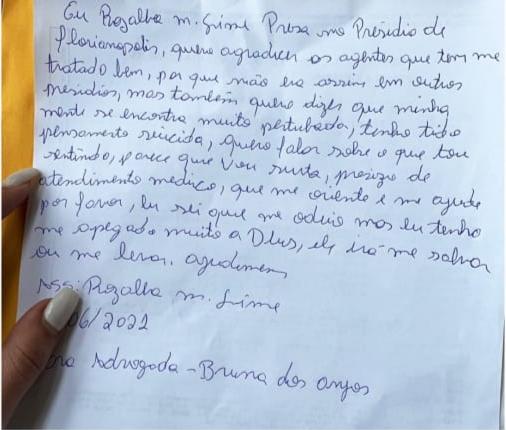 Eu Rozalba m. Grime Presa no Presidio de
florianopolis, quero agradicer os agentes que tem me
tratado bem, por que não era assim em outros
presidios, mas também quero dizer que minha
mente se encontra muito perturbada, tenho tido
pensamento suicida, quero falar sobre o que tou
sentindo, parece que vou surta, presizo de
atendimento medico, que me oriente e me ajude
por favor, Eu sei que me odeio mas eu tenho
me apegado muito a Deus, ele irá me salvar
ou me levar. ajudemem
Ass: Rozalba m. Grime
06/2021
Advogada - Bruna dos anjos